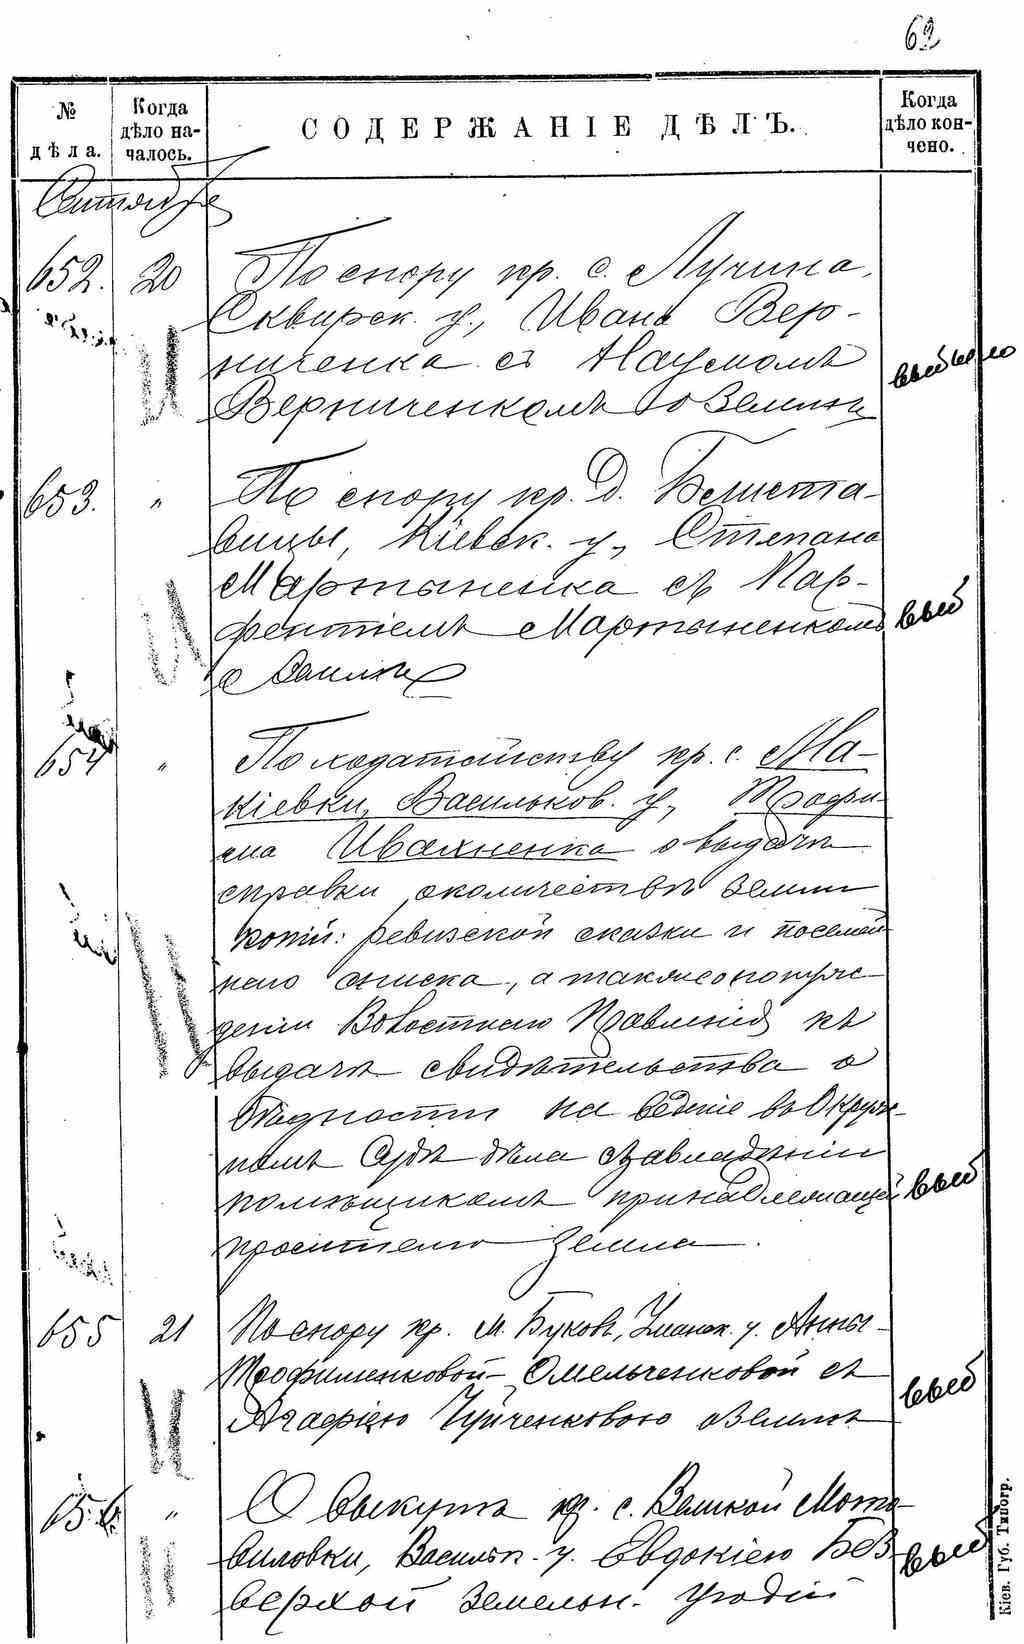 62
№ дѣла.
Когда дѣло на-
чалось.
СОДЕРЖАНІЕ ДѢЛЪ.
Когда
дѣло кон-
чено.
Октября
652. 20 По спору кр. с. Лучина,
Сквирск. у., Ивана Вер-
ниченка съ Наумомъ
Верниченкомъ о землѣ
выбыло
653. " По спору кр. д. Белиста-
вицы, Кіевск. у., Степана
Мартыненка съ Пар-
фентіемъ Мартыненкомъ
о землѣ
выб
654 " По ходатайству кр. с. Ма-
кіевки, Васильков. у., Трофи-
ма Ивахненка о выдачѣ
справки о количествѣ земли
копій: ревизской сказки и посемей-
наго списка, а также о понуж-
деніи Волостнаго Правленія къ
выдачѣ свидѣтельства о
бѣдности на веденіе въ Окруж-
номъ Судѣ дѣла о завладѣніи
помѣщикомъ принадлежащей
просителю земли.
выб
655 21 По спору кр. м. Буковъ, Уманск. у. Анны
Трофименковой-Омельченковой съ
Агафіею Чуйченковою о землѣ
выб
656. " О выкупѣ кр. с. Великой Мото-
виловки, Васильк. у. Евдокіею Без-
верхой земельн. угодій
выб
Кіев. Губ. Типогр.